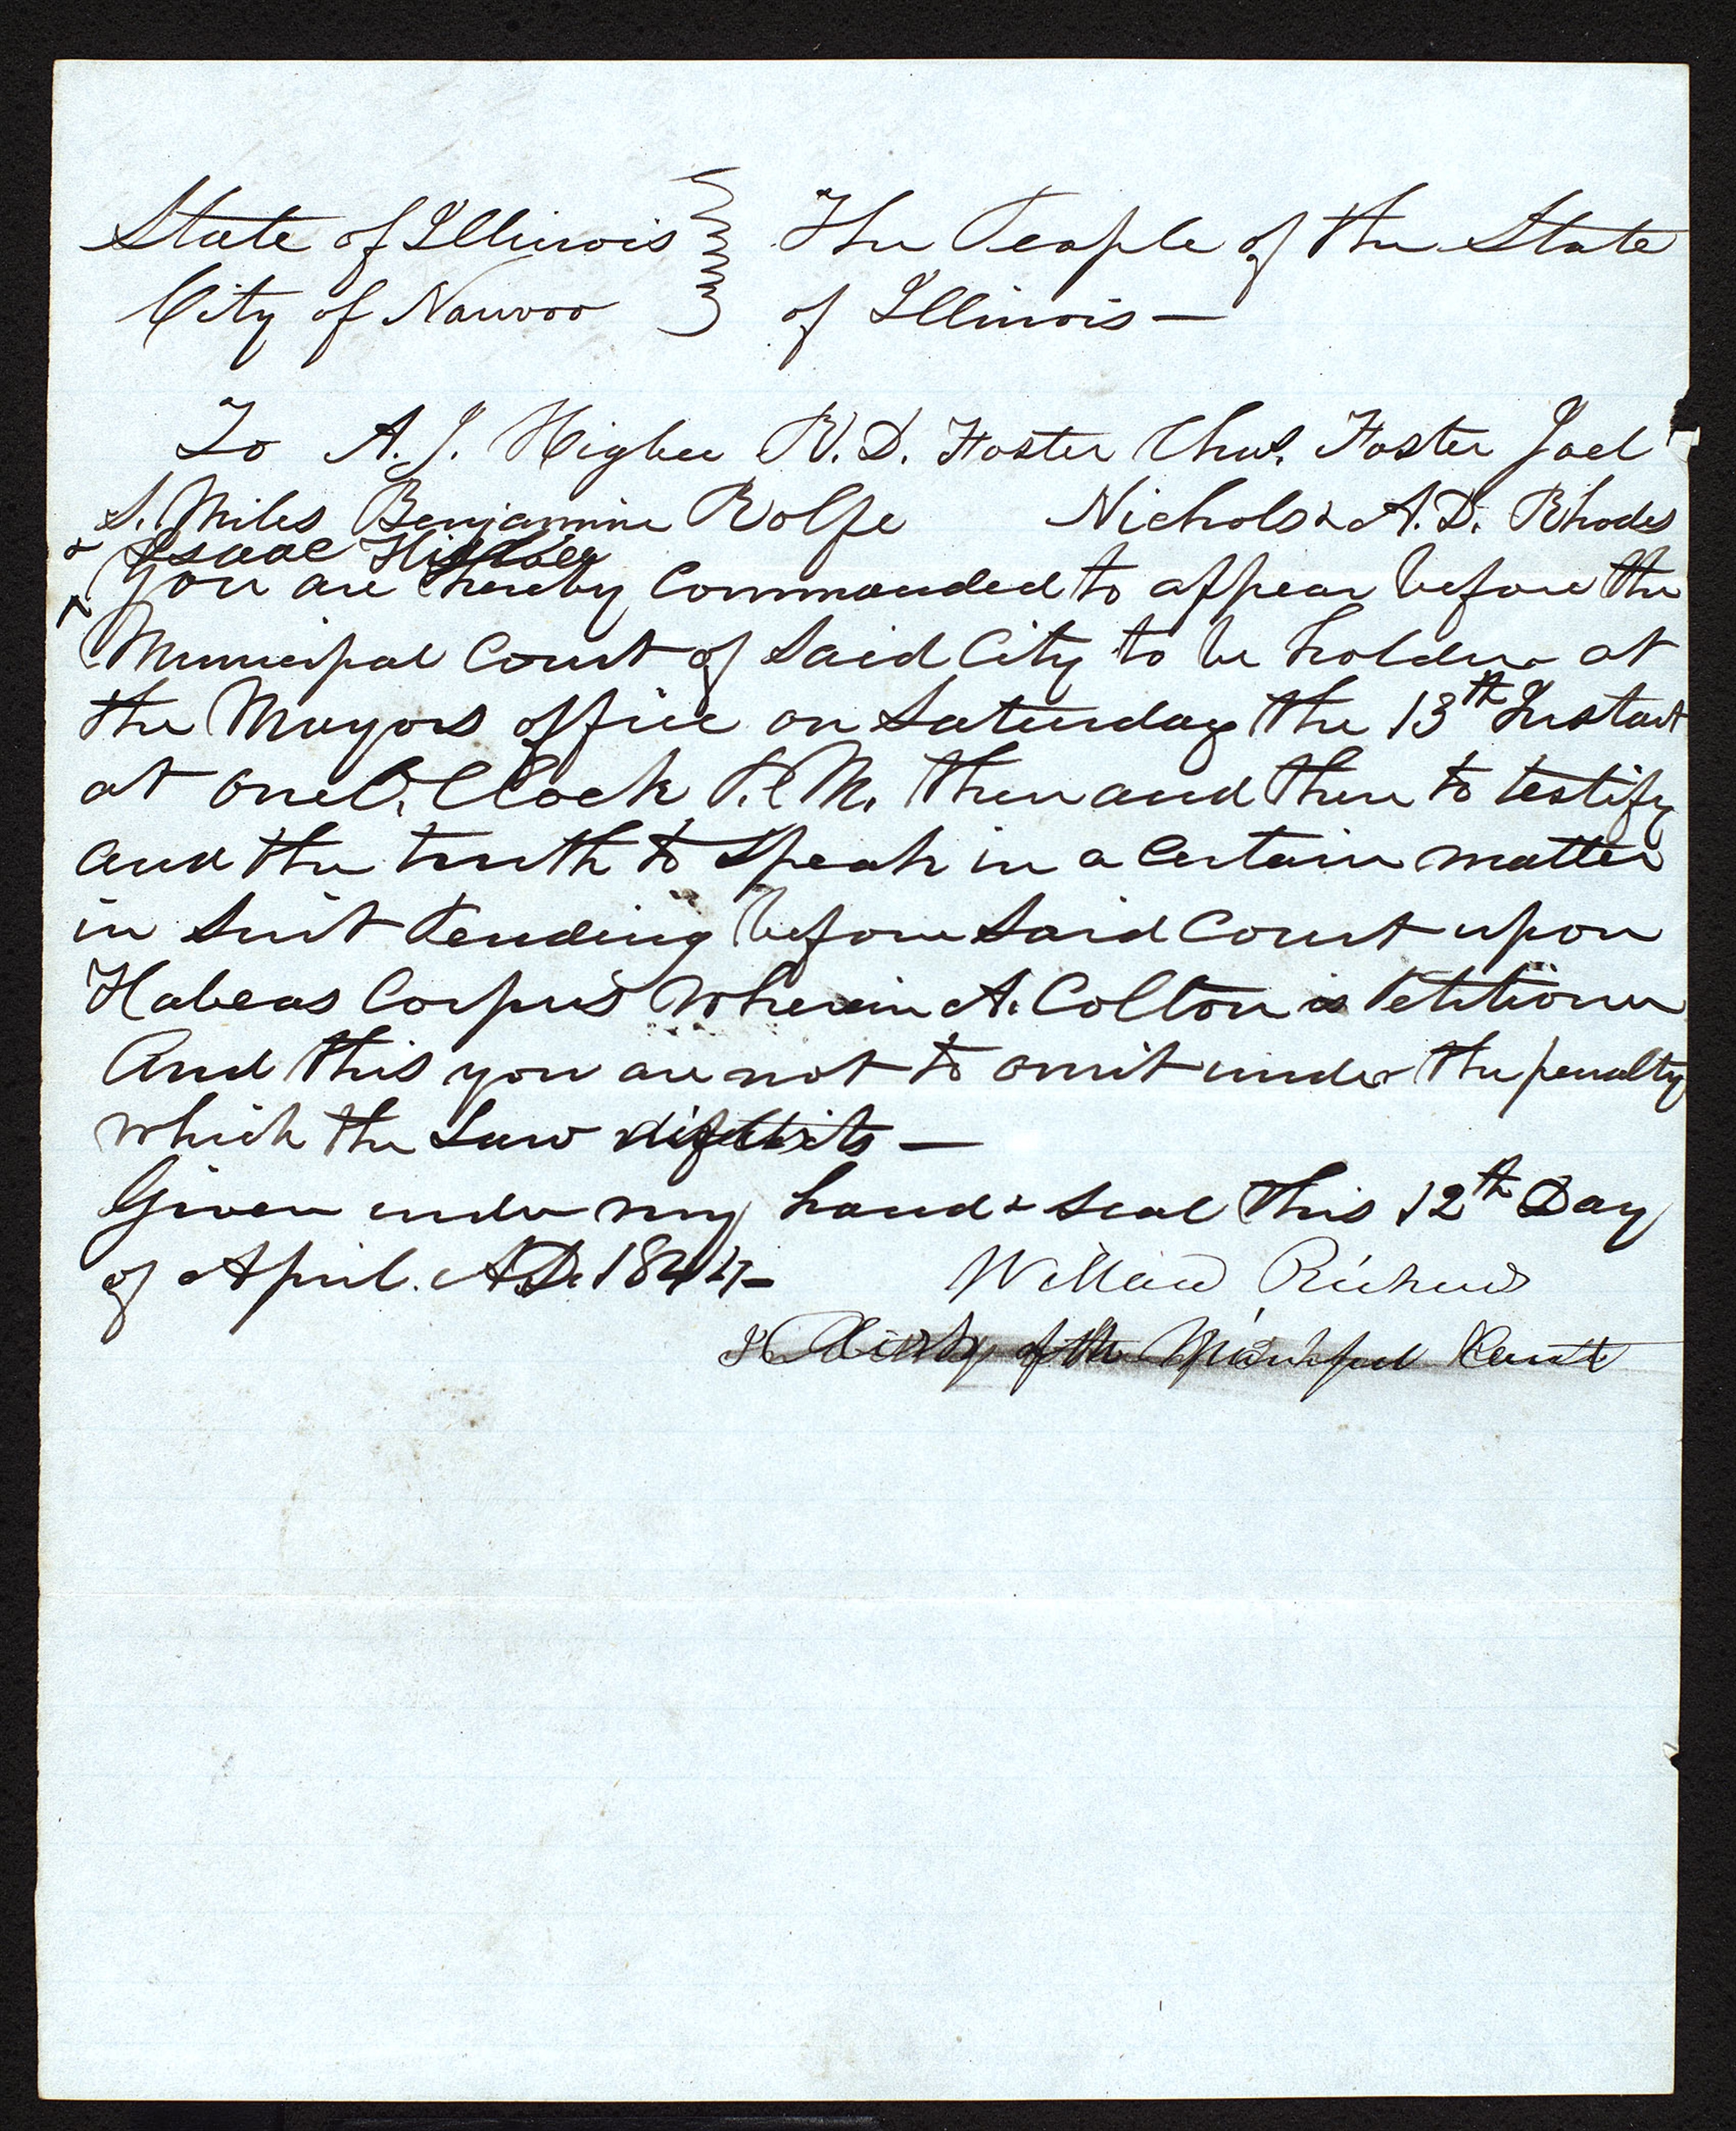 State of Illinois } The People of the State
City of Nauvoo } of Illinois —
To A. J. Higbee R. D. Foster Chas. Foster Joel
S. Miles Benjamine Rolfe Nichols & A. D. Rhodes
& Isaac Higbee
You are hereby Commanded to appear before the
Municipal Court of Said City to be holden at
the Mayors office on Saturday the 13th Instant
at one O, Clock P. M. then and there to testify
and the truth to Speak in a Certain matter
in Suit Pending before Said Court upon
Habeas Corpus Wherein A. Colton is Petitioner
And this you are not to omit under the penalty
which the Law
Given under my hand & Seal this 12th Day
of April. A.D. 1844—
Willard Richards
Clerk of the Municipal Court